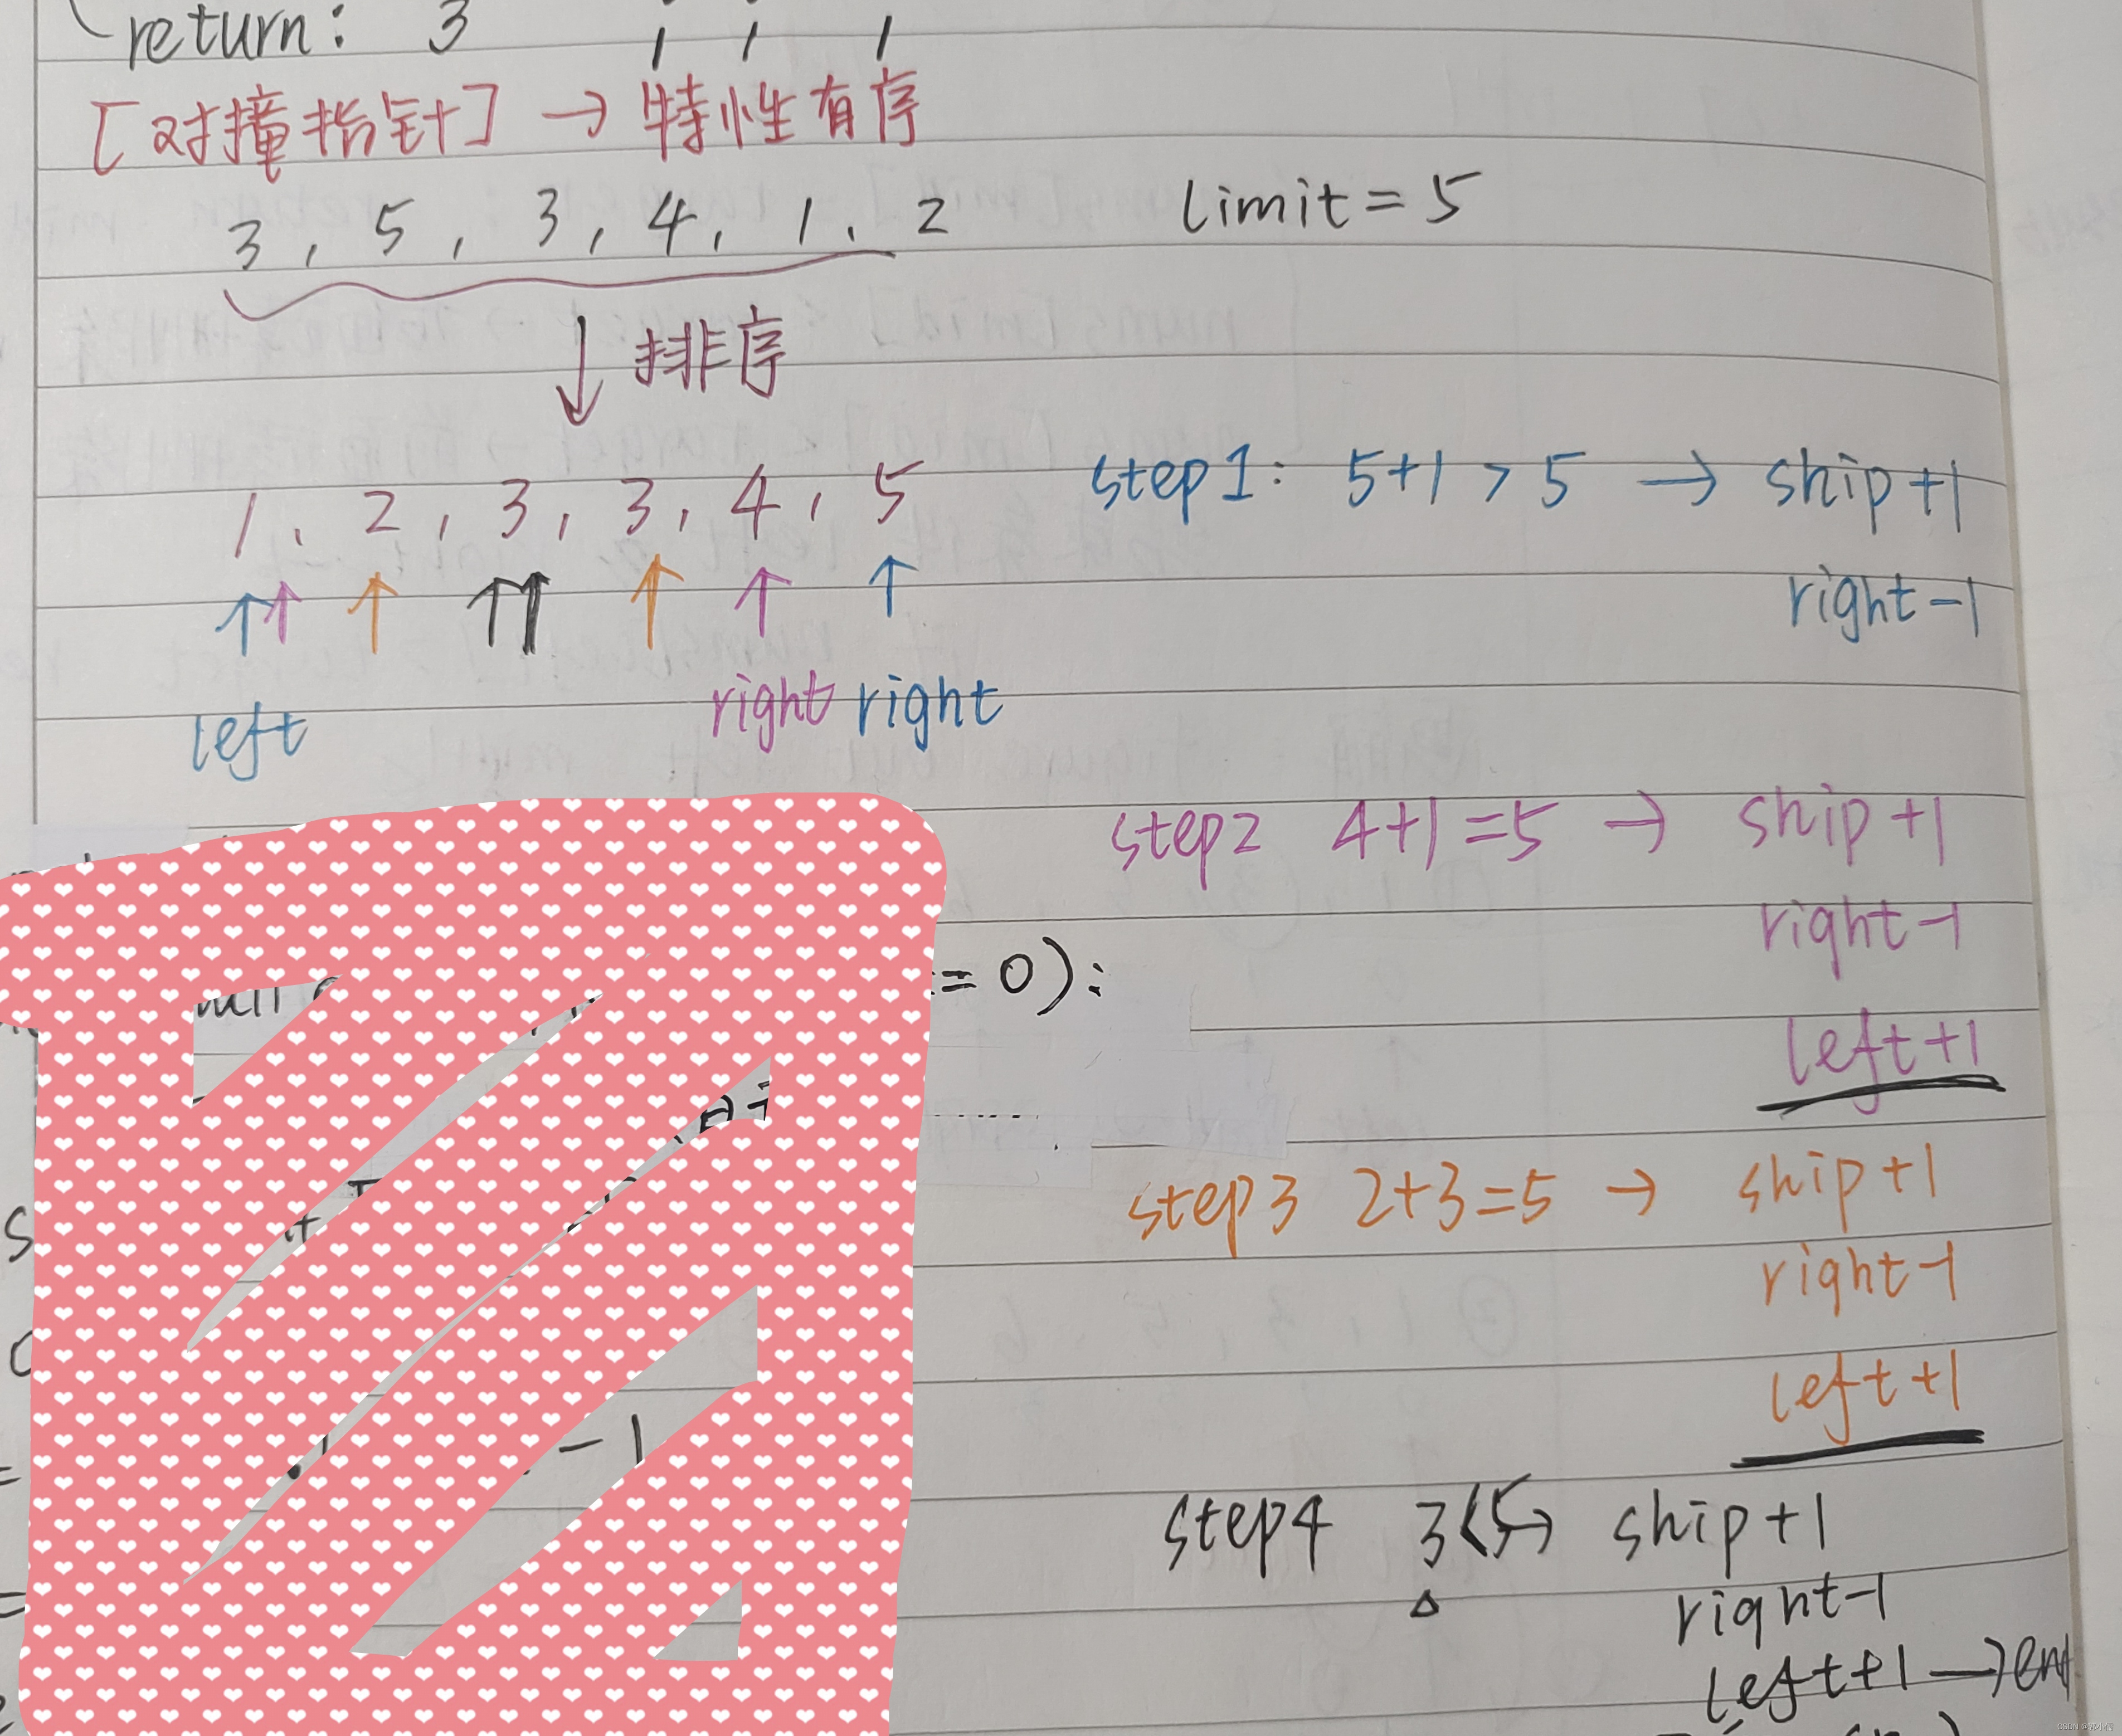 return: 3
[对撞指针] → 特性有序
3, 5, 3, 4, 1, 2 limit = 5
↓ 排序
1, 2, 3, 3, 4, 5 step1: 5+1 > 5 → ship+1
right-1
left right right
step2 4+1=5 → ship+1
right-1
= 0):
left+1
step3 2+3=5 → ship+1
right-1
left+1
-1
step4 3<5→ ship+1
right-1
left+1 →en